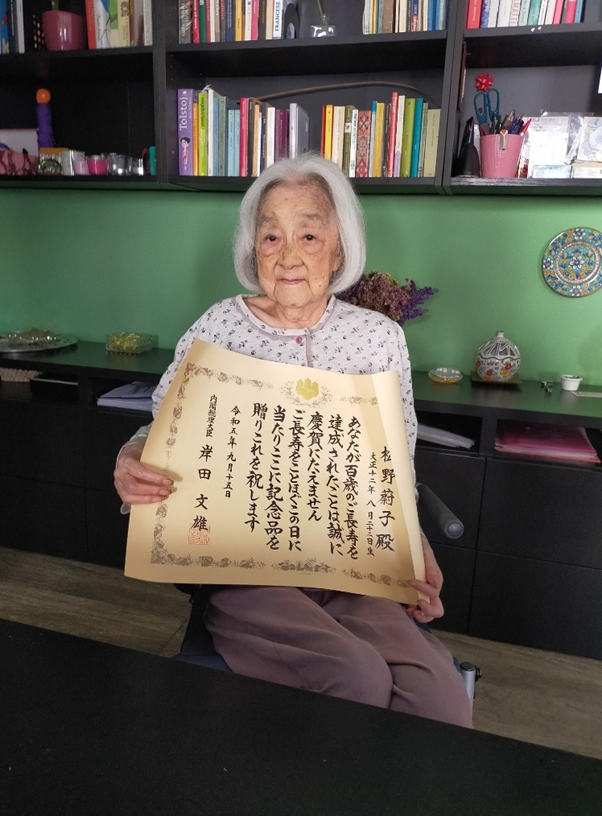 松野蔚子殿
大正十二年 八月二十二日生
あなたが百歳のご長寿を
達成されたことは誠に
慶賀にたえません
ご長寿をことほぐこの日に
当たりここに記念品を
贈りこれを祝します
令和五年九月十五日
内閣総理大臣 岸田文雄
Tolstoj